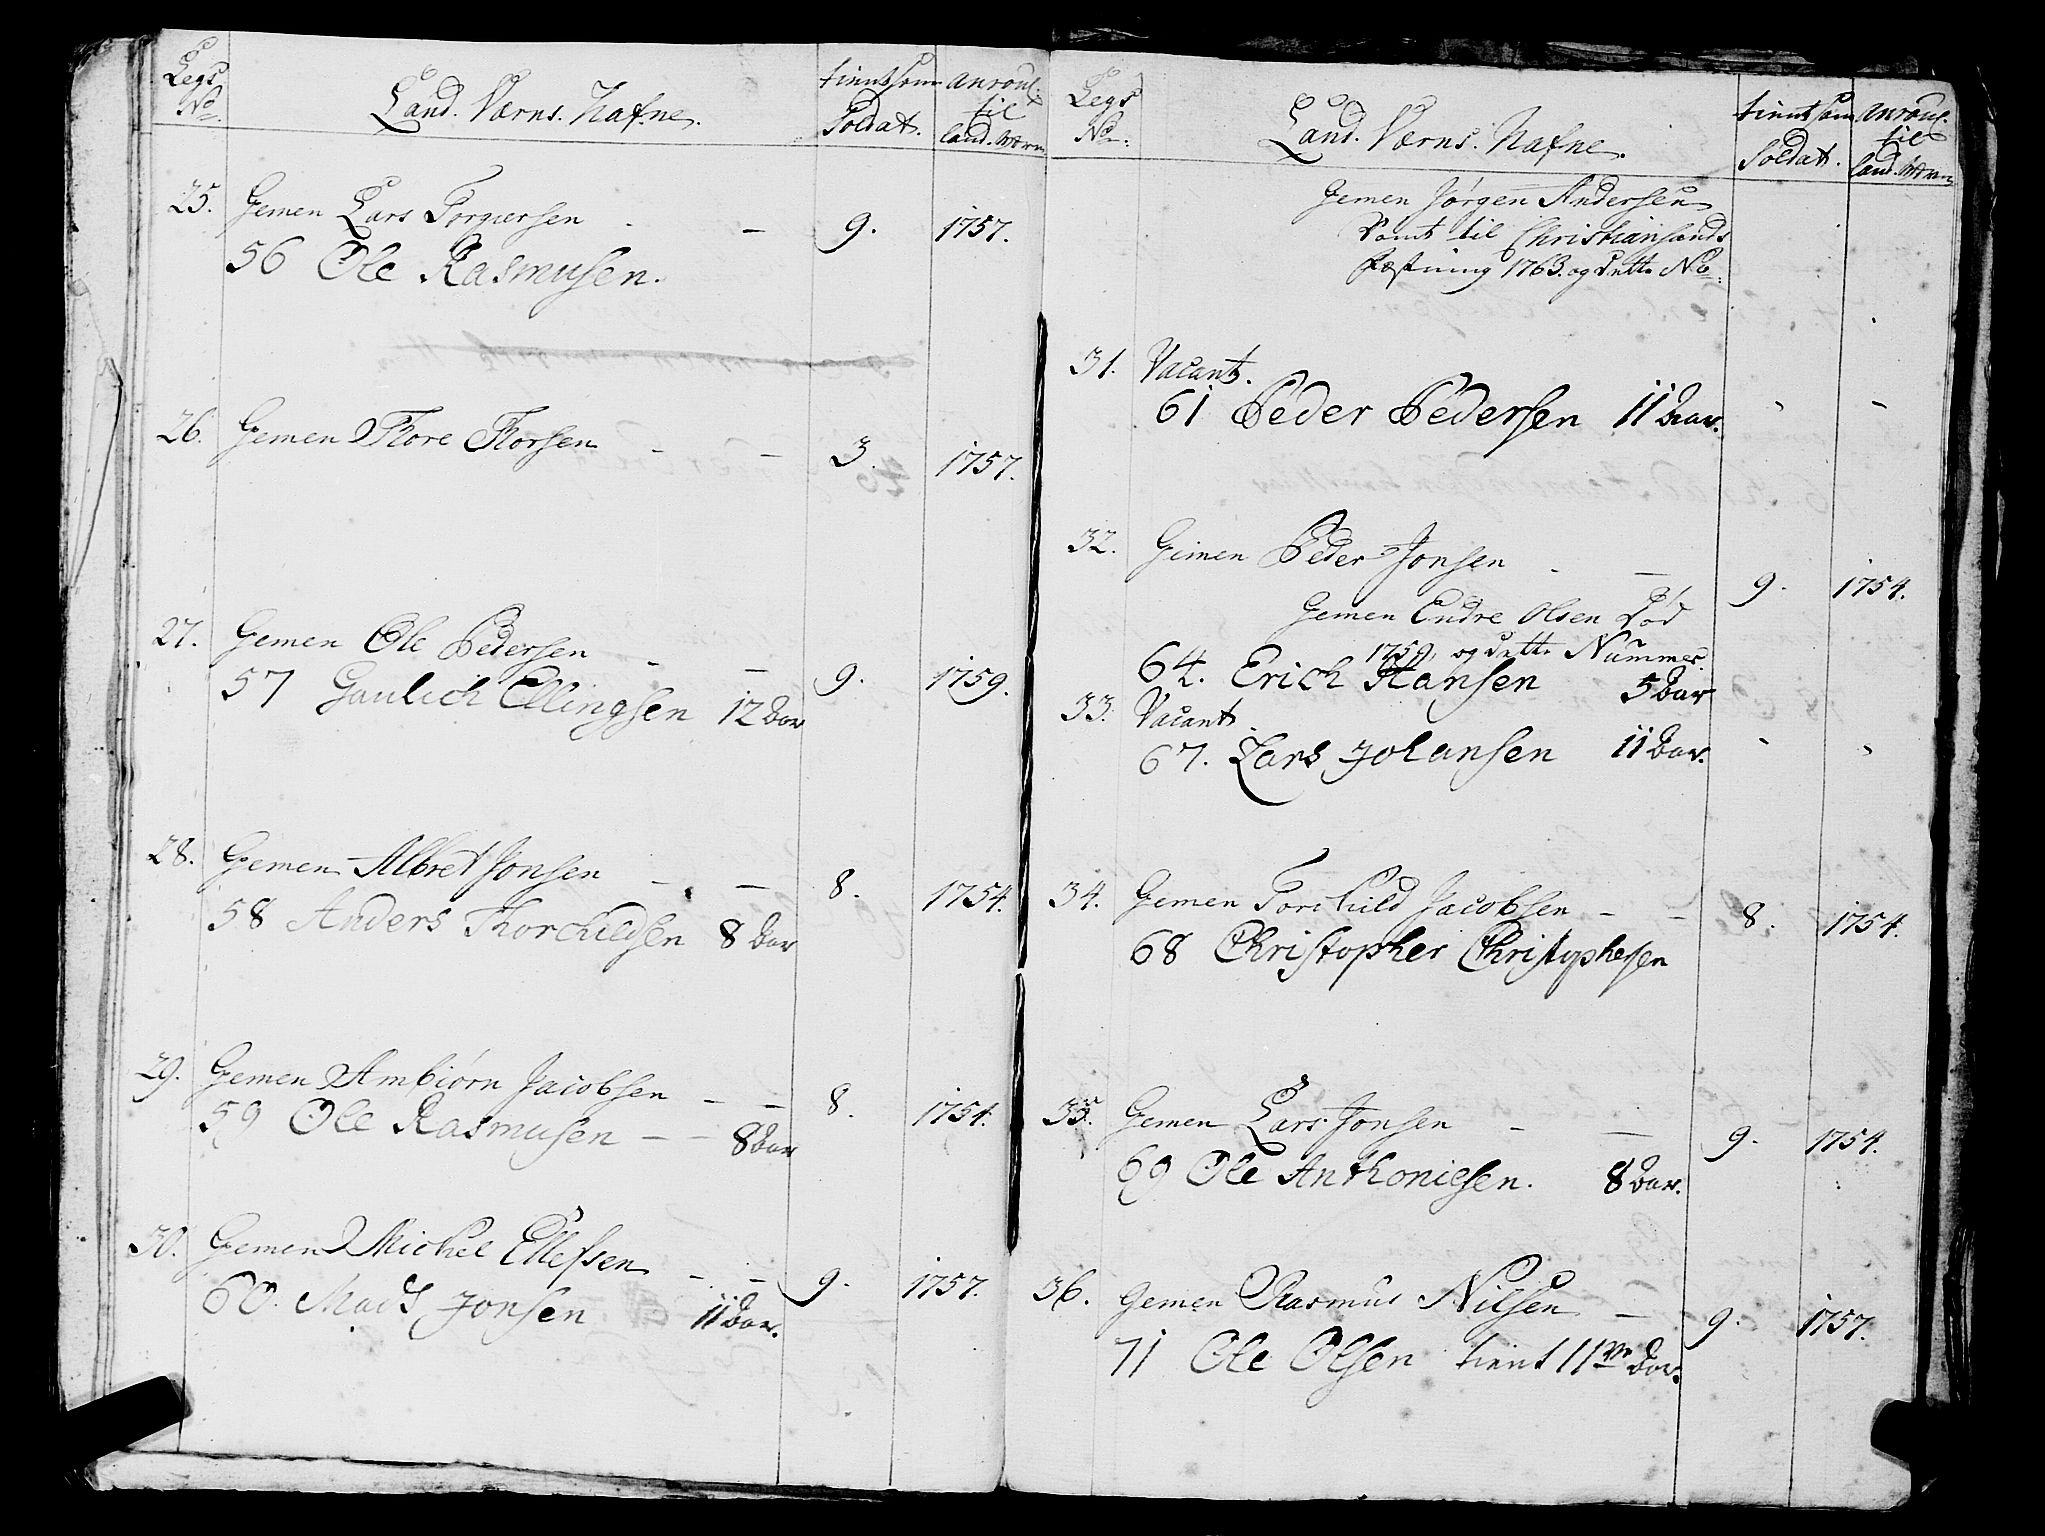 Legs No
Land. Værns. Nafne.
tient som Soldat.
anroul. til land. Wærn
25. Gemen Lars Torgiersen - 9. 1757.
56 Ole Rasmusen.
26. Gemen Thore Thorsen - - 3. 1757.
27. Gemen Ole Pedersen - - 9. 1759.
57 Gaulich Ellingsen 12 Aar
28. Gemen Albret Jonsen - - 8. 1754.
58 Anders Thorchildsen 8 Aar
29. Gemen Ambiørn Jacobsen - - 8. 1754.
59 Ole Rasmusen - - 8 Aar
30. Gemen Michel Ellefsen - - 9. 1757.
60. Mads Jonsen 11 Aar.
Legs No
Land. Værns. Nafne.
tient som Soldat.
anroul. til land. Wærn
Gemen Jørgen Andersen
Dømt til Christiansands
Fæstning 1763. og dette No
31. Vacant.
61 Peder Pedersen 11 Aar.
32. Gemen Peder Jonsen - - 9. 1754.
Gemen Endre Olsen Død
1759, og dette Nummer.
64. Erich Hansen 5 Aar
33. Vacant
67. Lars Johansen 11 Aar.
34. Gemen Torchild Jacobsen - - 8. 1754.
68 Christopher Christophersen
35. Gemen Lars Jonsen - - 9. 1754.
69 Ole Anthoniesen. 8 Aar.
36. Gemen Rasmus Nilsen - 9. 1757.
71 Ole Olsen tient 11 Aar.